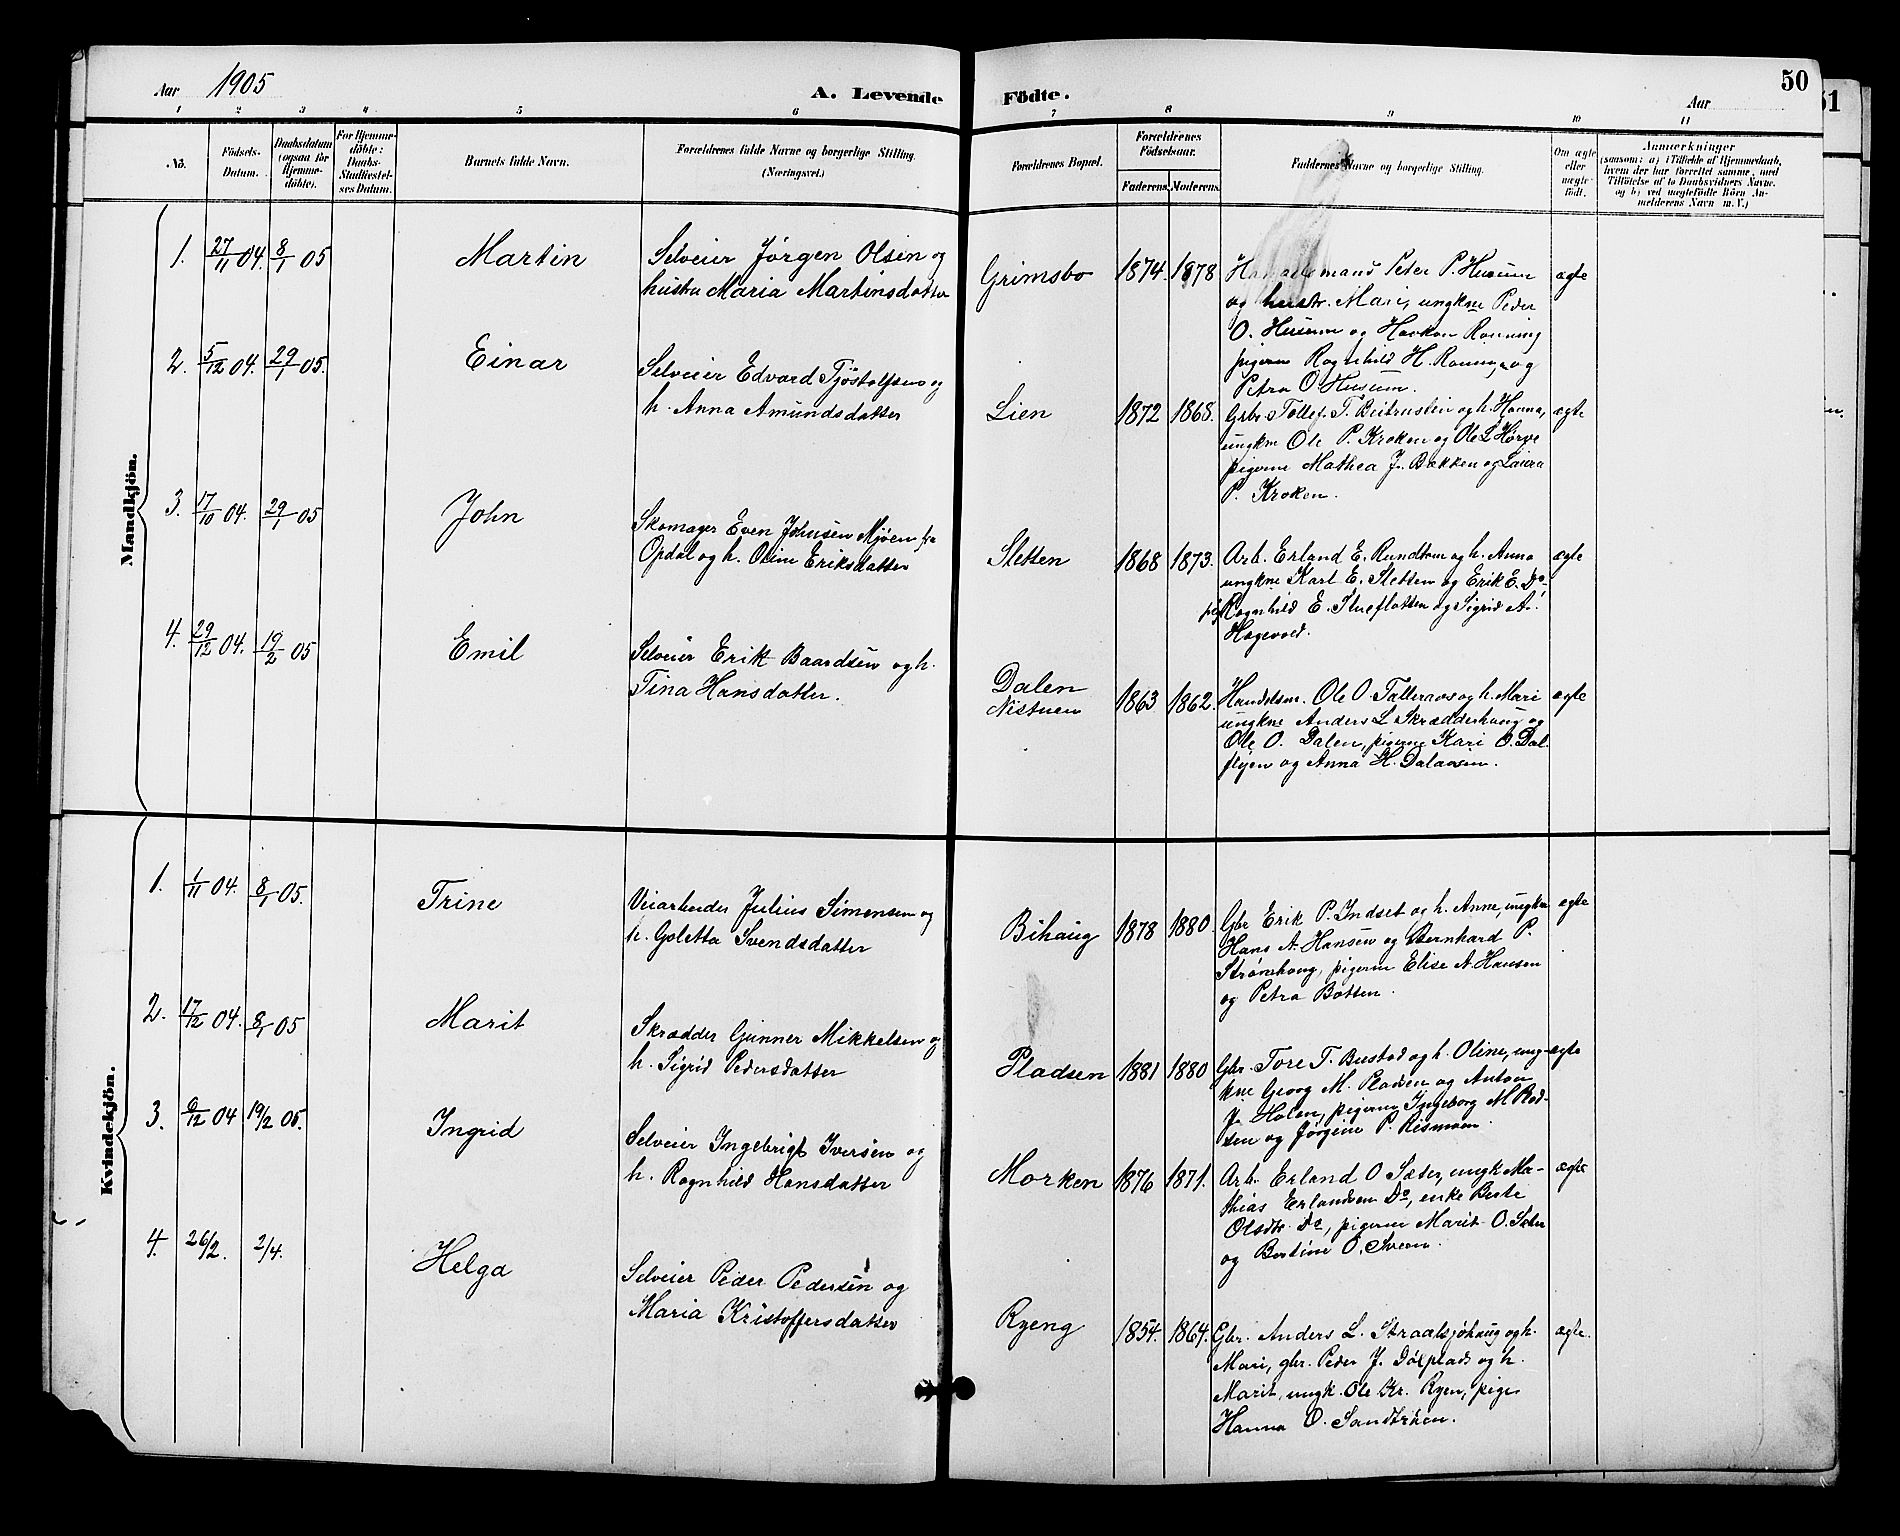 Aar 1905
A. Levende Födte.
50
51
Aar
1 2 3 4 5 6 7 8 9 10 11
No.
Födsels-Datum.
Daabsdatum (ogsaa for Hjemme-döbte).
For Hjemme-döbte: Daabs-Stadfæstel-ses Datum.
Barnets fulde Navn.
Forældrenes fulde Navne og borgerlige Stilling. (Næringsvei.)
Forældrenes Bopæl.
Forældrenes Födselsaar.
Faderens. Moderens.
Faddernes Navne og borgerlige Stilling.
Om ægte eller uægte födt.
Anmærkninger
(saasom: a) i Tilfælde af Hjemmedaab, hvem der har forrettet samme, med Tilföielse af to Daabsvidners Navne, og b) ved uægtefödte Börn An-melderens Navn m. V.)
Mandkjön.
1. 27/11 04. 8/1 05 Martin
Selveier Jørgen Olsen og
hustru Maria Martinsdatter
Grimsbo 1874. 1878
Handelsmand Peter P. Husum
og hustr. Mari, ungkne Peder
O. Husum og Haakon Rønning
pigerne Ragnhild H. Rønning og
Petra O. Husum.
ægte
2. 5/12 04. 29/1 05. Einar
Selveier Edvard Tjøstolfsen og
h. Anna Amundsdatter
Lien 1872 1868.
Gbr. Tollef T. Beitrusten og h. Hanna,
ungkne Ole P. Kroken og Ole L Hørpe
pigerne Mathea J. Bækken og Laura
P. Kroken.
ægte
3. 17/10 04. 29/1 05 John
Skomager Even Johnsen Mjøen fra
Opdal og h. Oline Eriksdatter
Sletten 1868 1873.
Arb. Erland E. Rundtom og h. Anna
ungkne Karl E. Sletten og Erik E. Do
pig. Ragnhild E. Stueflotten og Sigrid A.
Hagevold.
ægte
4. 29/12 04. 19/2 05 Emil
Selveier Erik Baardsen og h.
Tina Hansdatter.
Dalen
Nistuen 1863 1862.
Handelsm. Ole O. Talleraas og h. Mari
ungkne Anders L Skrædderhaug og
Ole O. Dalen, pigerne Kari O. Dal
flyen og Anna H. Dalaasen.
ægte
Kvindekjön.
1. 1/11 04. 8/1 05. Trine
Veiarbeider Julius Simensen og
h. Goletta Svendsdatter
Bihaug 1878 1880
Gbr Erik P. Indset og h. Anne, ungkne
Hans A. Hansen og Bernhard P.
Strømshaug, pigerne Elise A. Hansen
og Petra Botten.
ægte
2. 17/12 04. 8/1 05 Marit
Skrædder Gunner Mikkelsen og
h. Sigrid Pedersdatter
Pladsen 1881 1880
Gbr. Tore T. Bustad og h. Oline, ung-
kne Georg M. Pladsen og Anton
J. Holen, pigerne Ingeborg M Plad-
sen og Jørgine P. Rismoen.
ægte
3. 6/12 04 19/2 05. Ingrid
Selveier Ingebrigt Iversen og
h. Ragnhild Hansdatter
Morken 1876 1871.
Arb. Erland O Sæter, ungk Ma-
thias Erlandsen Do, enke Beste
Olsdtr Do, pigerne Marit O. Sæter
og Bertine O. Sveen.
ægte
4. 26/2. 2/4. Helga
Selveier Peder Pedersen og
Maria Kristoffersdatter
Ryeng 1854. 1864.
Gbr. Anders L. Straalsjøhaug og h.
Mari, gbr. Peder J. Dølplads og h.
Marit, ungk. Ole Kr. Ryen, pige
Hanna O. Sandtrøen.
ægte.